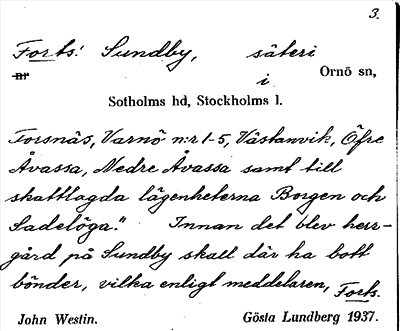 3.
Forts: Sundby, säteri
nr i Ornö sn,
Sotholms hd, Stockholms l.
Forsnäs, Varnö n:r 1-5, Västanvik, Öfre
Åvassa, Nedre Åvassa samt till
skattlagda lägenheterna Borgen och
Sadelöga." Innan det blev herr-
gård på Sundby skall där ha bott
bönder, vilka enligt meddelaren, Forts.
John Westin. Gösta Lundberg 1937.